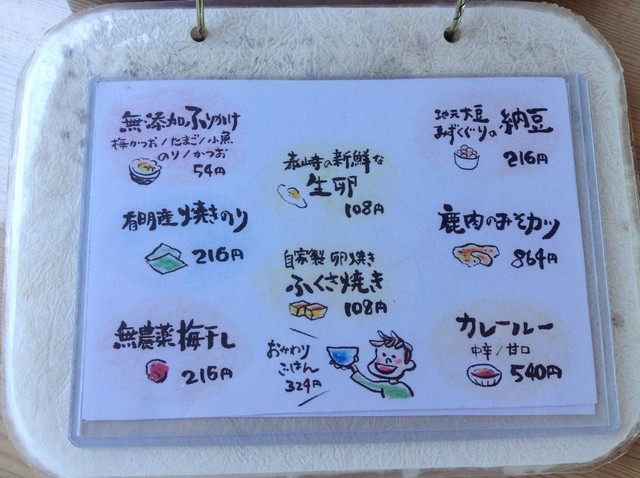 無添加ふりかけ
梅かつお/たまご/小魚
のり/かつお
54円
有明産焼きのり
216円
無農薬梅干し
216円
森山寺の新鮮な
生卵
108円
自家製卵焼き
ふくさ焼き
108円
おかわり
ごはん
324円
地元大豆
みずくぐりの納豆
216円
鹿肉のみそカツ
864円
カレールー
中辛/甘口
540円